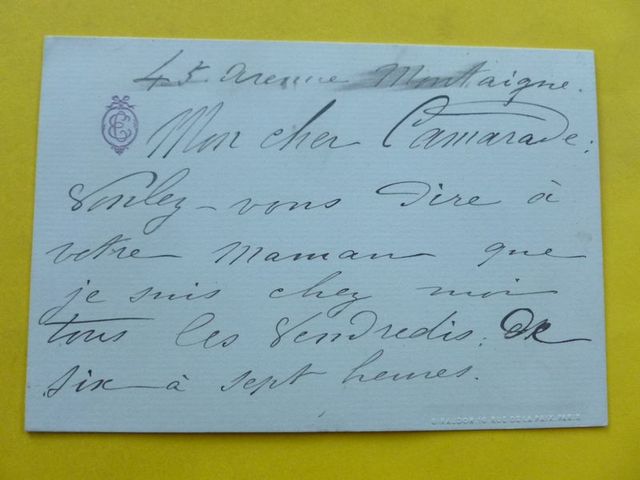 45 avenue Montaigne.
Mon cher Camarade:
Voulez-vous dire à
votre maman que
je suis chez moi
tous les Vendredis. De
six à sept heures.
10 RUE DE LA PAIX PARIS